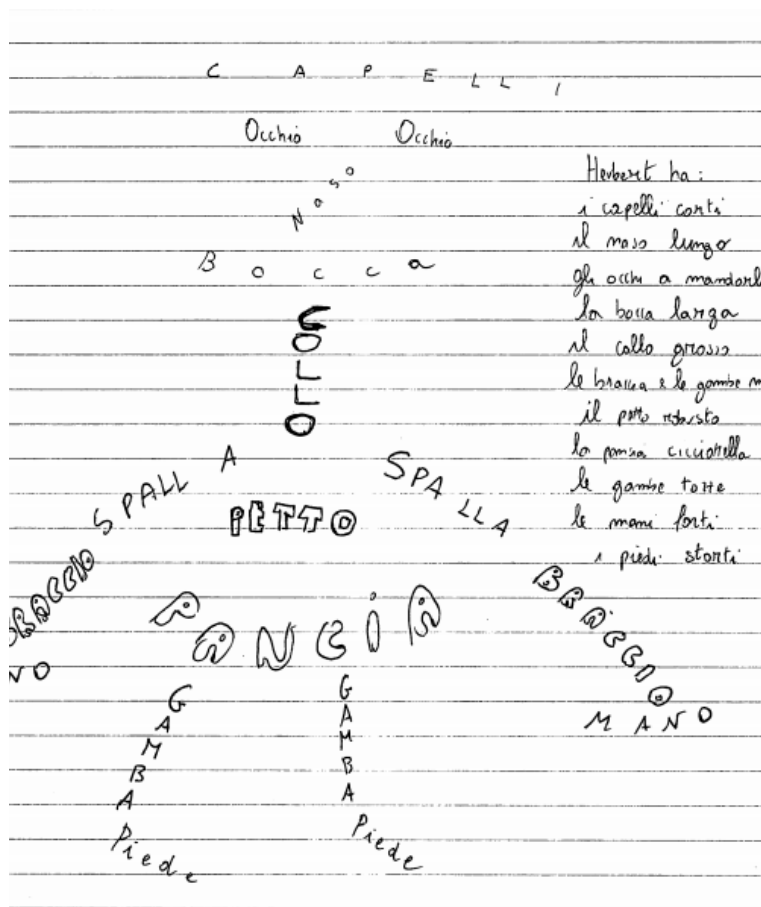 CAPELLI
Occhio Occhio
Naso
Bocca
COLLO
SPALLA SPALLA
PETTO
BRACCIO BRACCIO
PANCIA
NO MANO
GAMBA GAMBA
Piede Piede
Herbert ha:
i capelli corti
il naso lungo
gli occhi a mandorl
la bocca larga
il collo grosso
le braccia e le gambe m
il petto robusto
la pancia
le gambe torte
le mani forti
i piedi storti